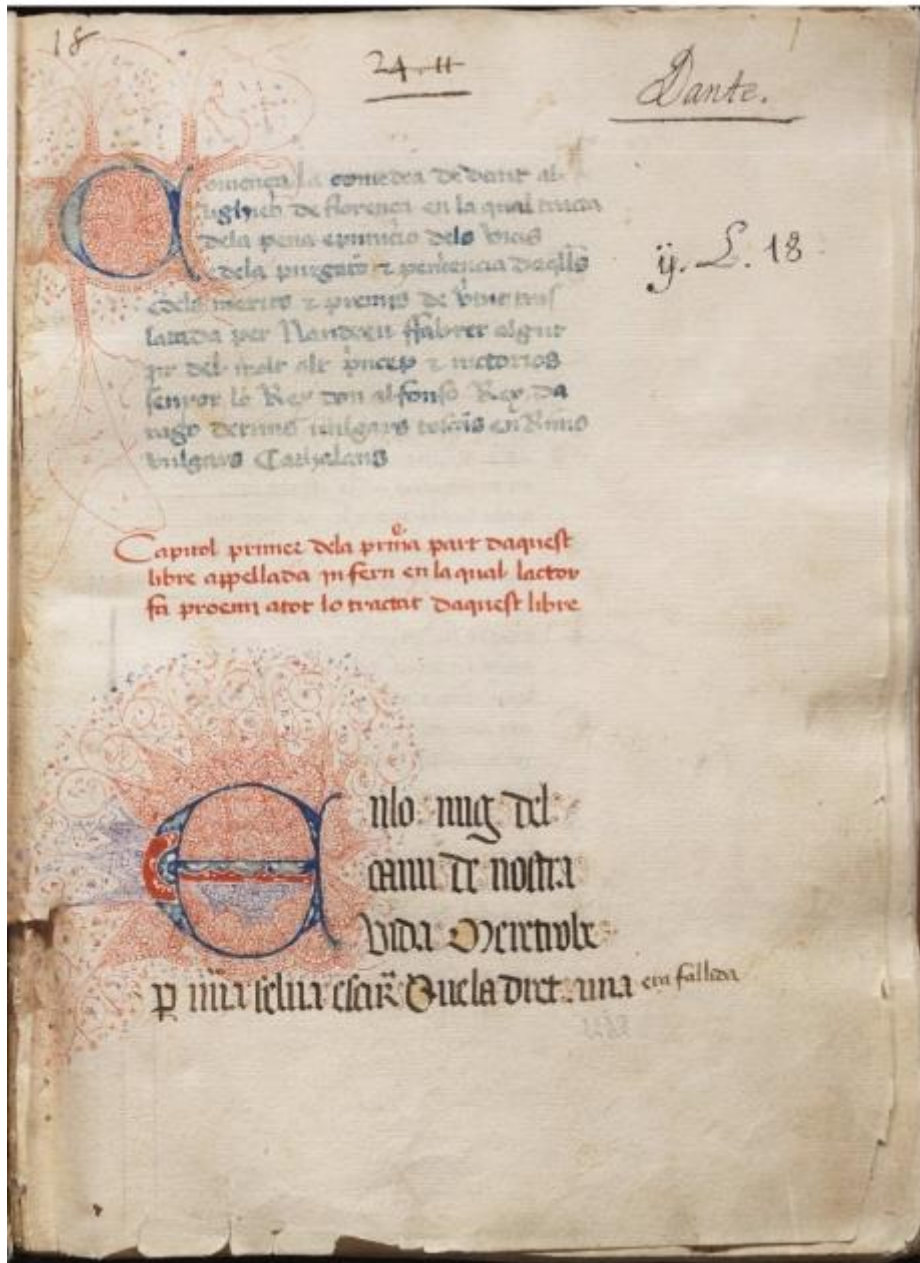 18
24.11
Dante.
ÿ. L. 18
Comença la comedia de dant al-
de florença en la qual tracta
dela pena e punicio dels vicis
e dela purgacio & penitencia daqlls
e dels merits & premis de virtut trans
latada per N andreu ffebrer algut
zir del molt alt princep & victorios
senyor lo Rey don alfonso Rey da
rago de rims vulgars toscans en Rims
vulgars Cathalans
Capitol primer dela primera part daquest
libre appellada infern en la qual lactor
fa proemi a tot lo tractat daquest libre
En lo mig del
cami de nostra
vida Me retrobe
p una selva escura Que la dreta via era fallida